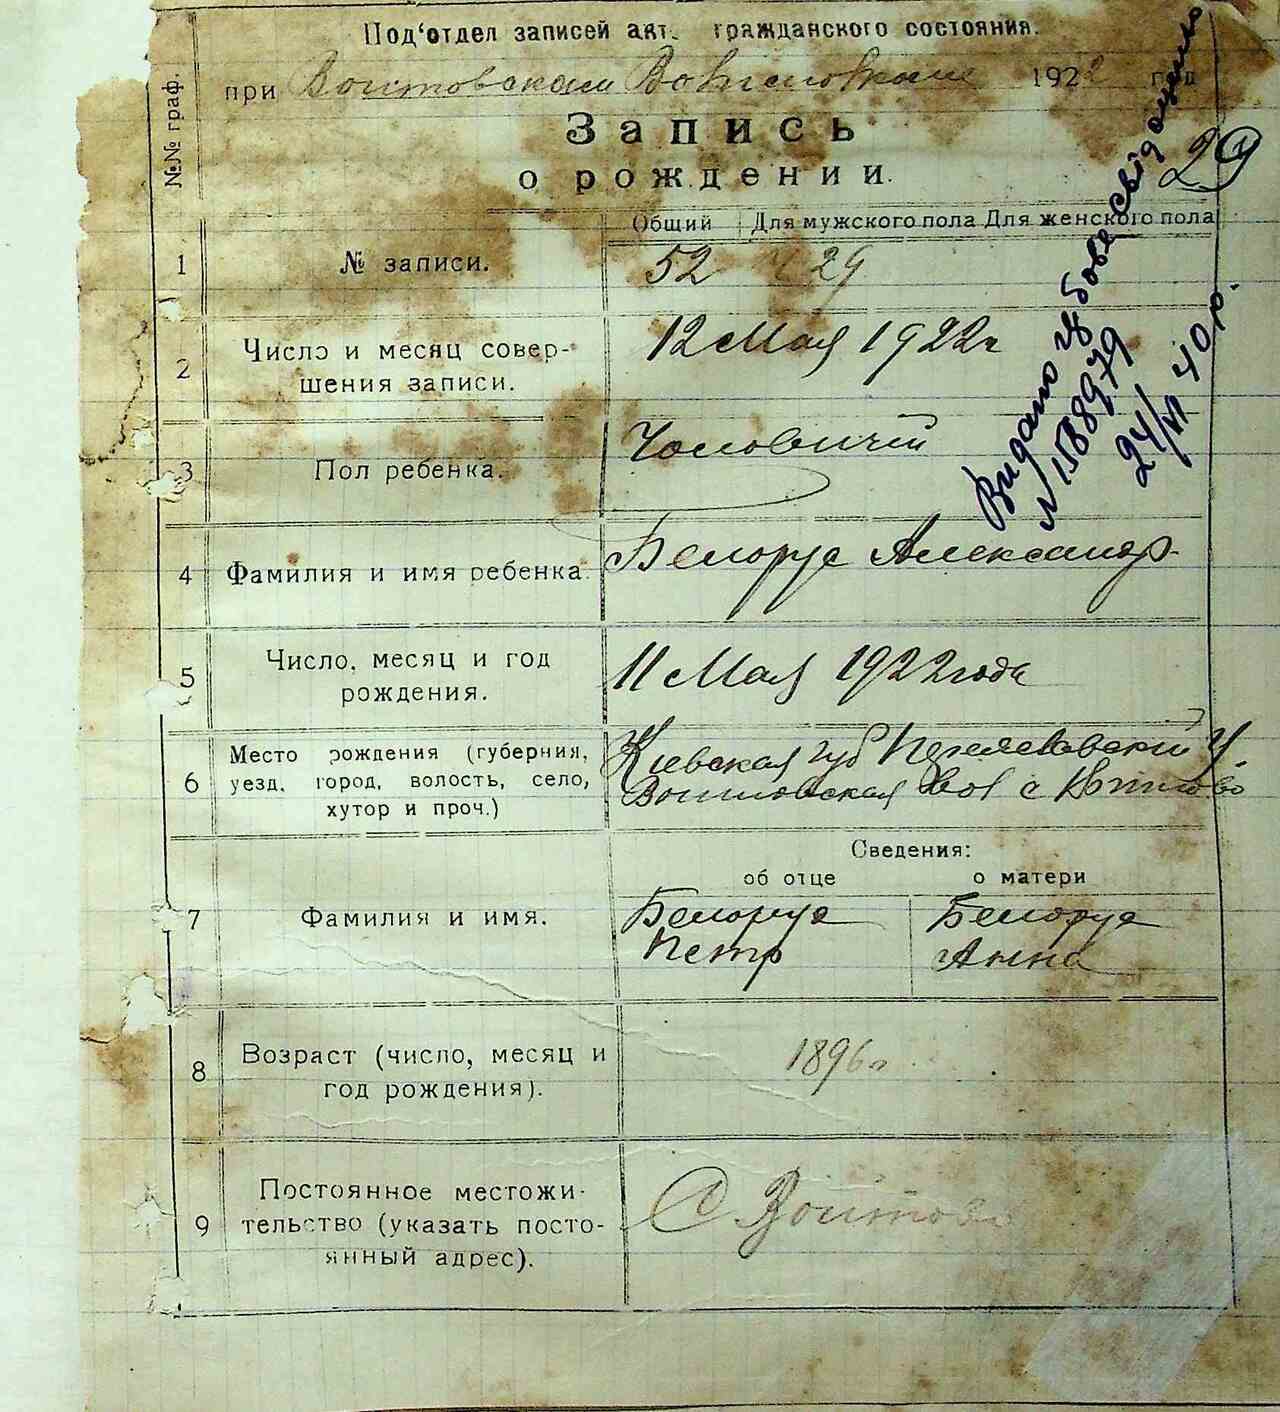 Под‘отдел записей акт. гражданского состояния.
при Воитовском 1922 год
№№ граф.
Запись
о рождении.
29
Общий Для мужского пола Для женского пола
1 № записи. 52 29
2 Число и месяц совер-
шения записи.
12 Мая 1922 г
3 Пол ребенка. Чоловичий
Видано
N 1588979
24/VI 40 р.
4 Фамилия и имя ребенка. Белорус Александр
5 Число, месяц и год
рождения.
11 Мая 1922 года
6 Место рождения (губерния,
уезд, город, волость, село,
хутор и проч.)
Киевская губ У
Воитовская вол с Воитово
Сведения:
об отце о матери
7 Фамилия и имя.
Белорус Белорус
Петр Анна
8 Возраст (число, месяц и
год рождения).
1896 г
9 Постоянное местожи-
тельство (указать посто-
янный адрес).
С Воитово